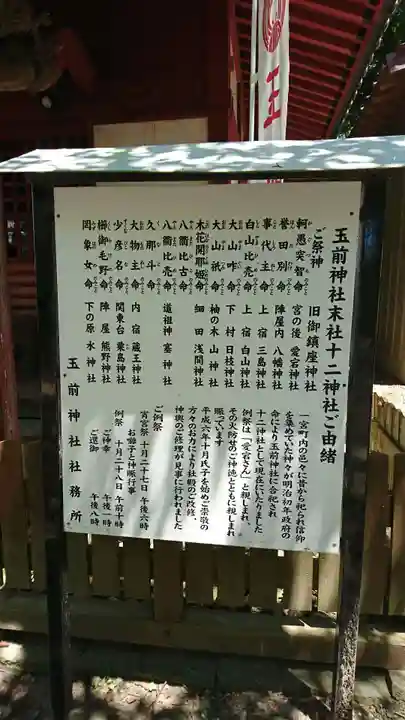 玉前神社末社十二神社ご由緒
ご祭神 旧御鎮座神社
軻愚突智命 宮の後 愛宕神社
誉田別命 陣屋内 八幡神社
事代主命 上宿 三島神社
白山比売命 上宿 白山神社
大山咋命 下村 日枝神社
大山祇命 柚の木 山神社
木花開耶姫命 細田 浅間神社
八衢比古命
八衢比売命 道祖神 塞神社
久那斗命
大物主命 内宿 蔵王神社
少彦名命 関東台 粟島神社
櫛御毛野命 陣屋 熊野神社
罔象女命 下の原 水神社
一宮町内の邑々に昔から祀られ信仰
を集めていた神々が明治初年政府の
命により玉前神社に合祀され
十二神社として現在にいたりました
例祭は「愛宕さん」と親しまれ、
その火防せのご神徳とともに親しまれ
賑っています
平成六年十月氏子を始めご崇敬の
方々のお力により社殿のご改修、
神輿のご修理が見事に行われました
ご例祭
宵宮祭 十月二十七日 午後六時
お獅子と神賑行事
例祭 十月二十八日 午前十時
ご神幸 午後一時
ご還御 午後八時
玉前神社社務所
玉